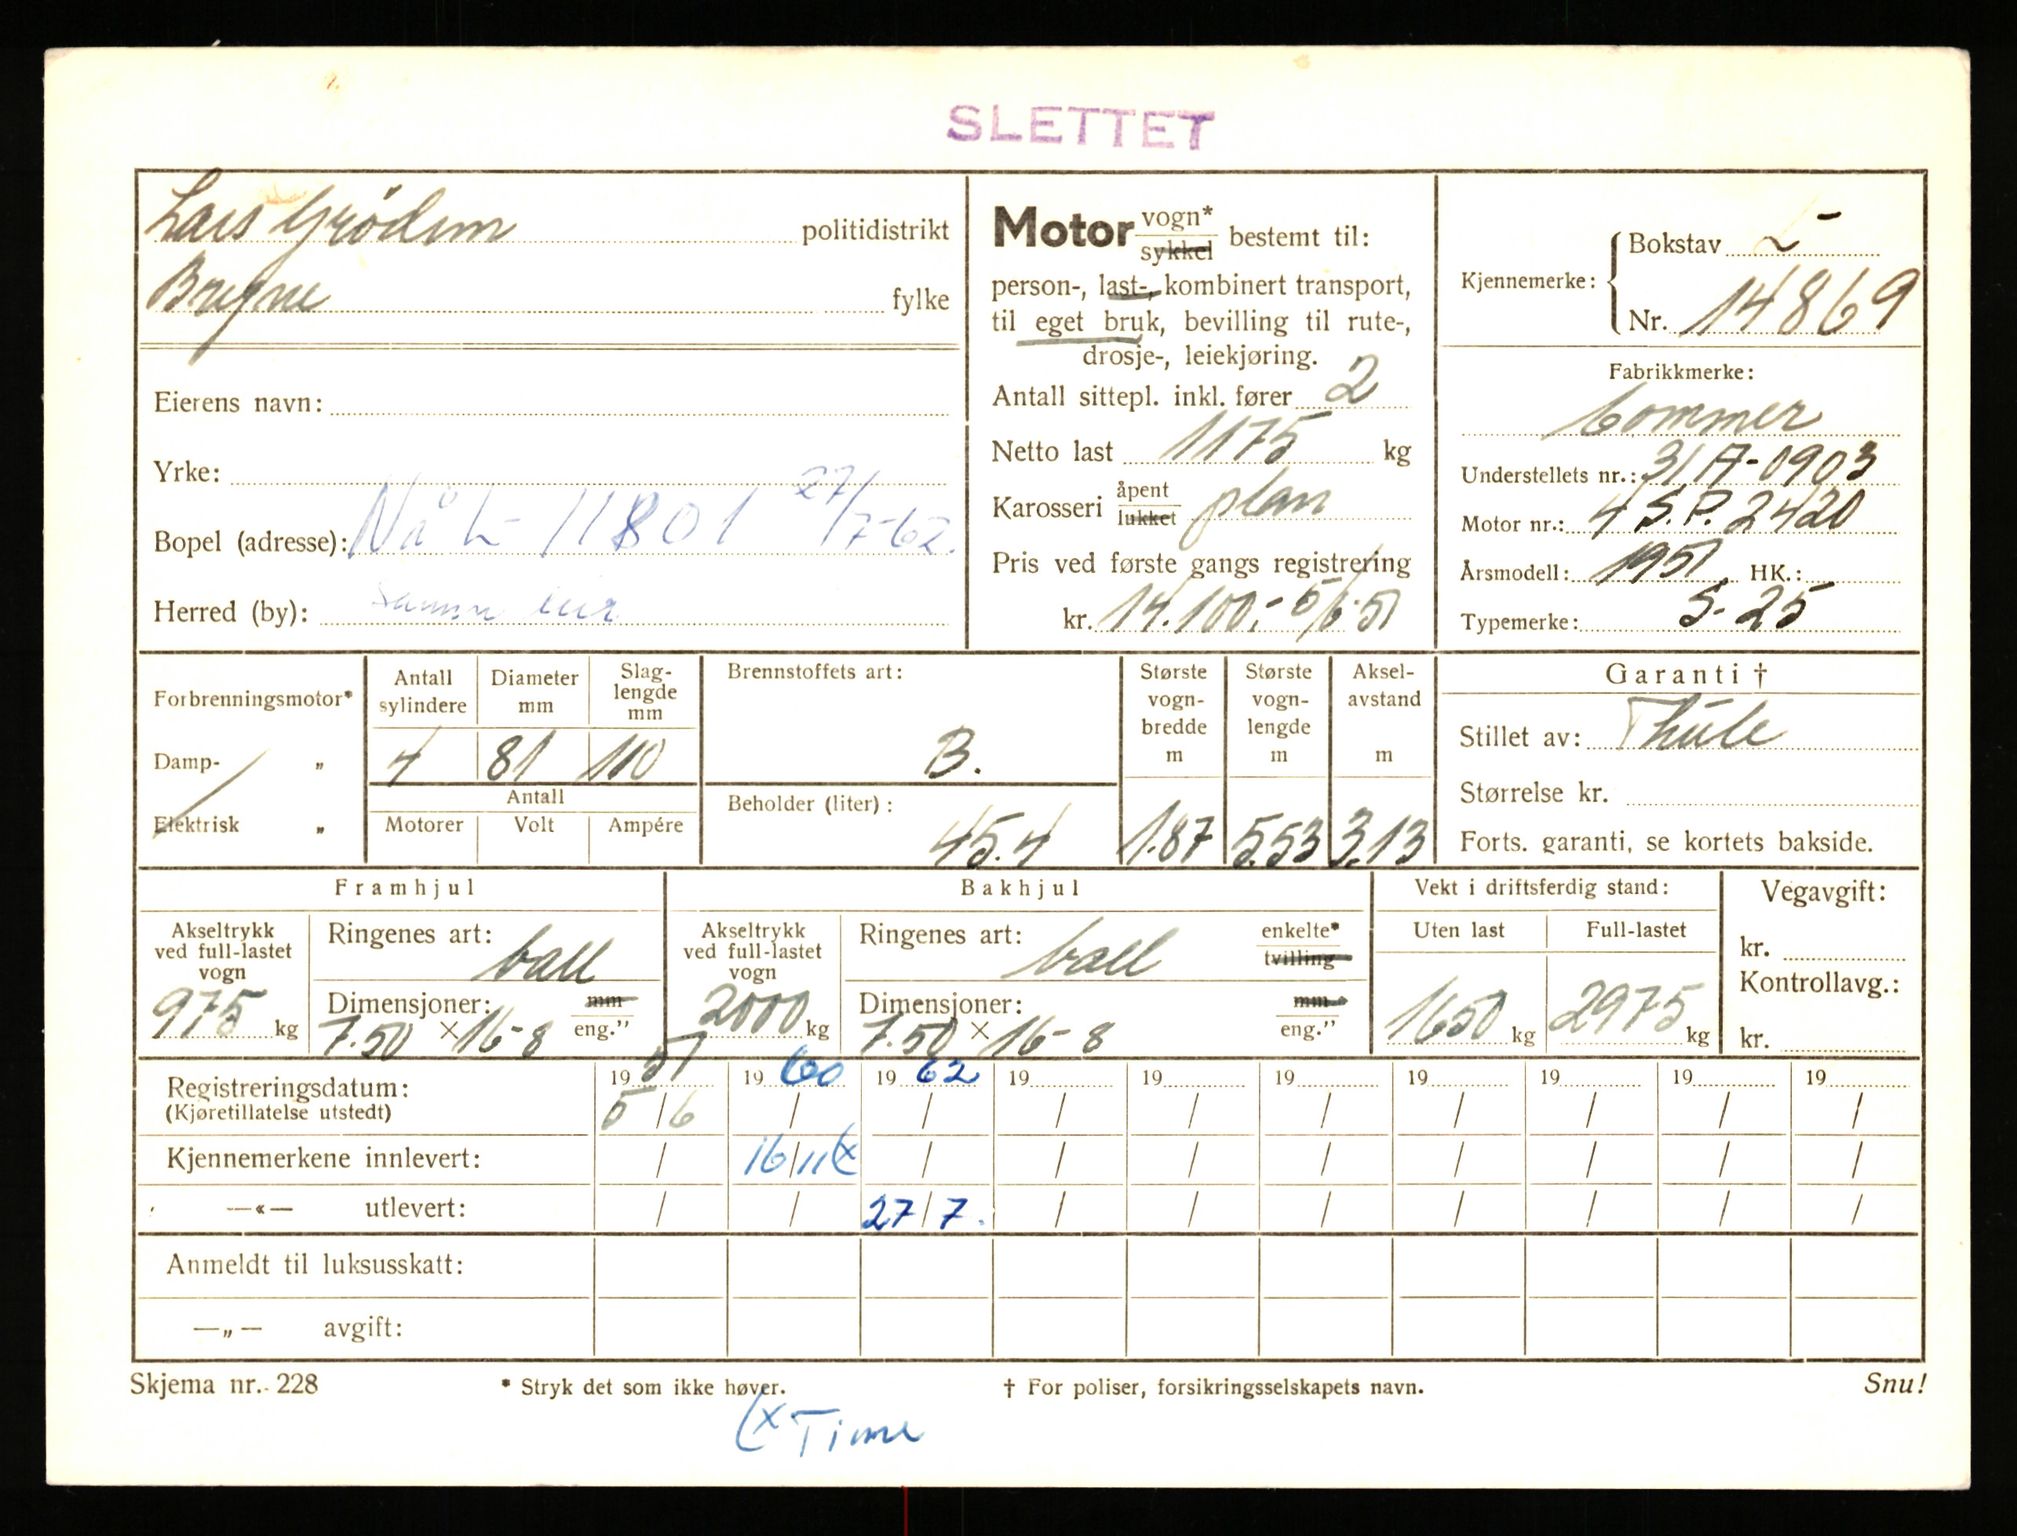 SLETTET
Lars Grödem politidistrikt
Bryne fylke
Eierens navn:
Yrke:
Bopel (adresse): Nå L- 11801 27/7-62.
Herred (by): samme eier
Motor vogn* sykkel bestemt til:
person-, last-, kombinert transport,
til eget bruk, bevilling til rute-,
drosje-, leiekjøring.
Antall sittepl. inkl. fører 2
Netto last 1175 kg
Karosseri åpent lukket plan
Pris ved første gangs registrering
kr. 14.100,- 5/6-51
Kjennemerke: Bokstav L-
Nr. 14869
Fabrikkmerke:
Commer
Understellets nr.: 31A-0903
Motor nr.: 4 S.P. 2420
Årsmodell: 1951 HK.:
Typemerke: S-25
Forbrenningsmotor*
Damp- „
Elektrisk „
Antall sylindere Diameter mm Slag-lengde mm
4 81 110
Antall
Motorer Volt Ampére
Brennstoffets art:
B.
Beholder (liter):
45.4
Største vogn-bredde m Største vogn-lengde m Aksel-avstand m
1.87 5.53 3.13
Garanti †
Stillet av: Thule
Størrelse kr.
Forts. garanti, se kortets bakside.
Framhjul
Akseltrykk ved full-lastet vogn
975 kg
Ringenes art: ball
Dimensjoner: mm
7.50 × 16-8 eng."
Bakhjul
Akseltrykk ved full-lastet vogn
2000 kg
Ringenes art: ball enkelte* tvilling
Dimensjoner: mm
7.50 × 16-8 eng."
Vekt i driftsferdig stand:
Uten last Full-lastet
1650 kg 2975 kg
Vegavgift:
kr.
Kontrollavg.:
kr.
Registreringsdatum: 19 51 19 60 19 62 19 19 19 19 19 19 19
(Kjøretillatelse utstedt) 5/6 / / / / / / / / /
Kjennemerkene innlevert: / 16/11 (x / / / / / / / /
—«— utlevert: / / 27/7. / / / / / / /
Anmeldt til luksusskatt:
—„— avgift:
Skjema nr. 228 * Stryk det som ikke høver. † For poliser, forsikringsselskapets navn. Snu!
(x Time